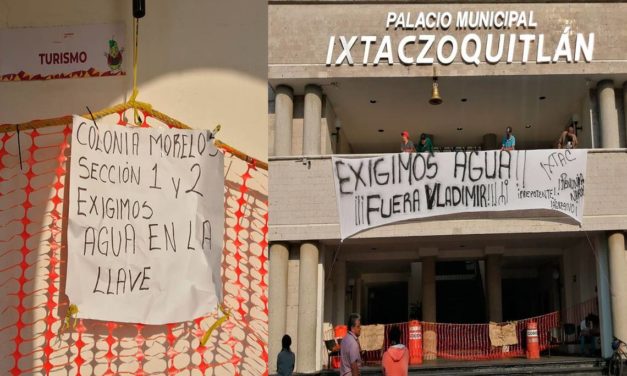 TURISMO
COLONIA MORELOS
SECCIÓN 1 y 2
EXIGIMOS
AGUA EN LA
LLAVE
PALACIO MUNICIPAL
IXTACZOQUITLÁN
EXIGIMOS AGUA!!
¡¡¡FUERA VLADIMIR!!!
IXTAC
¡PREPOTENTE!